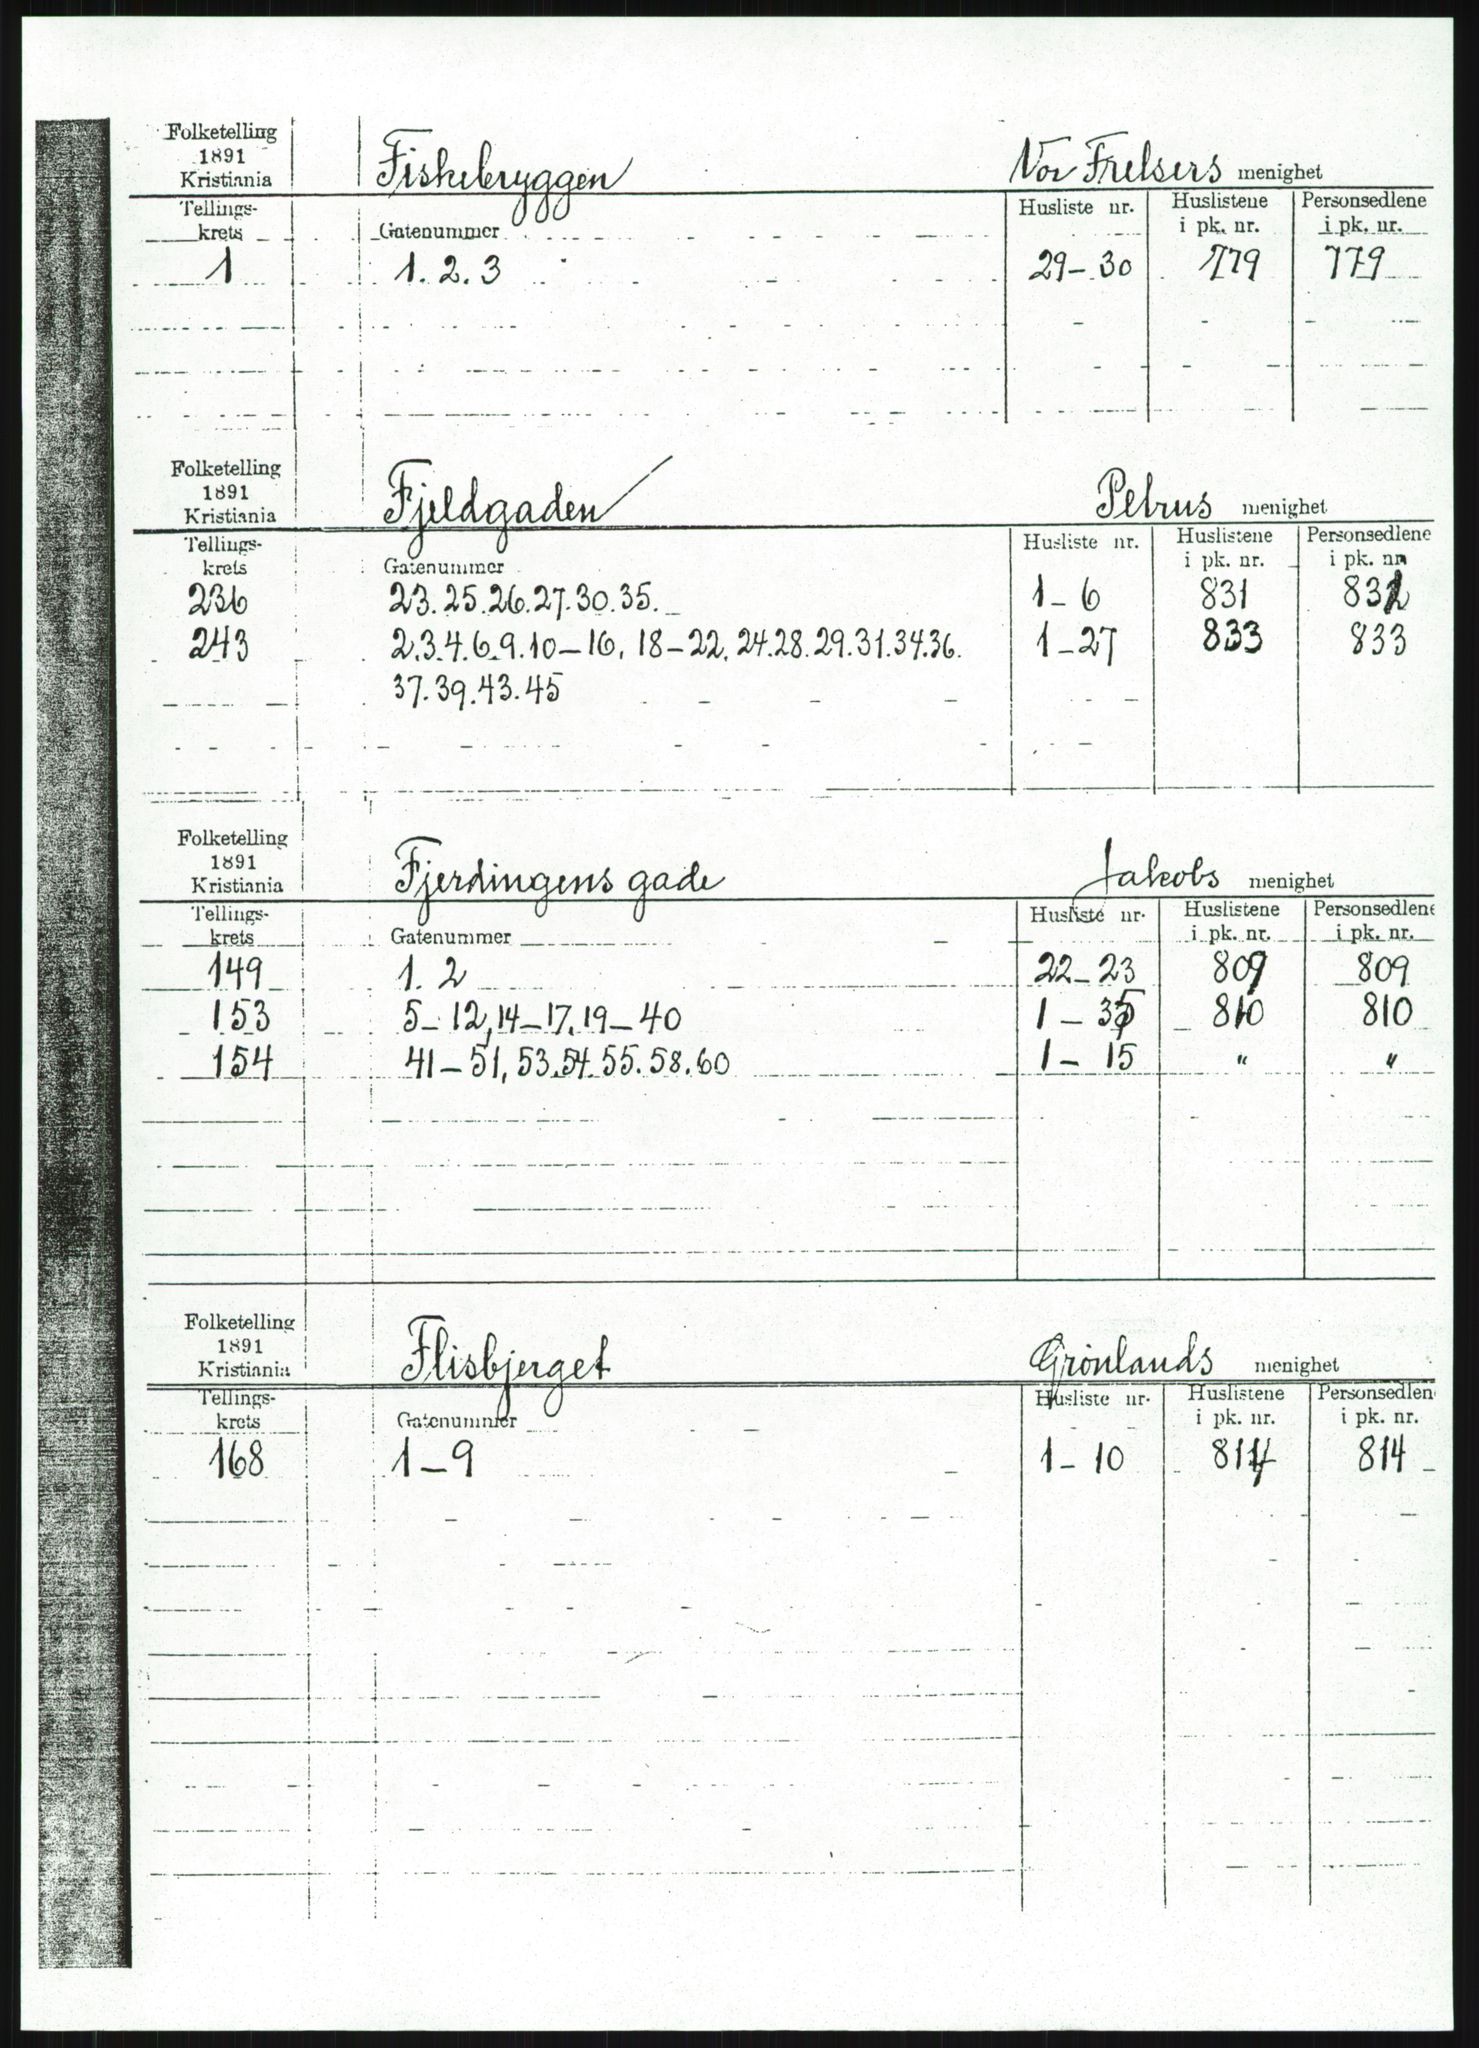 Folketelling
1891
Kristiania
Fiskebryggen
Vor Frelsers menighet
Tellings-
krets
Gatenummer
Husliste nr.
Huslistene
i pk. nr.
Personsedlene
i pk. nr.
1 1. 2. 3 29-30 779 779
Folketelling
1891
Kristiania
Fjeldgaden
Petrus menighet
Tellings-
krets
Gatenummer
Husliste nr.
Huslistene
i pk. nr.
Personsedlene
i pk. nr.
236 23. 25. 26. 27. 30. 35. 1-6 831 832
243 2. 3. 4. 6. 9. 10-16, 18-22, 24. 28. 29. 31. 34. 36. 1-27 833 833
37. 39. 43. 45
Folketelling
1891
Kristiania
Fjerdingens gade
Jakobs menighet
Tellings-
krets
Gatenummer
Husliste nr.
Huslistene
i pk. nr.
Personsedlene
i pk. nr.
149 1. 2 22-23 809 809
153 5-12, 14-17, 19-40 1-35 810 810
154 41-51, 53. 54. 55. 58. 60 1-15 " "
Folketelling
1891
Kristiania
Flisbjerget
Grönlands menighet
Tellings-
krets
Gatenummer
Husliste nr.
Huslistene
i pk. nr.
Personsedlen
i pk. nr.
168 1-9 1-10 814 814